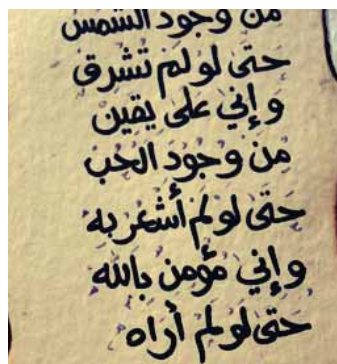 من وجود الشمس
حتى لو لم تشرق
و إني على يقين
من وجود الحب
حتى لو لم أشعر به
و إني مؤمن بالله
حتى لو لم أراه